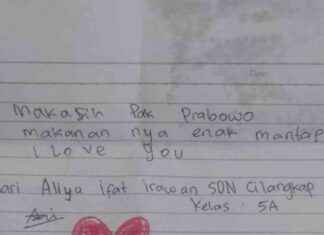 Makasih Pak Prabowo
makanan nya enak mantap
I Love you
ari Aliya ifat irawan SDN Cilangkap
Kelas : 5A